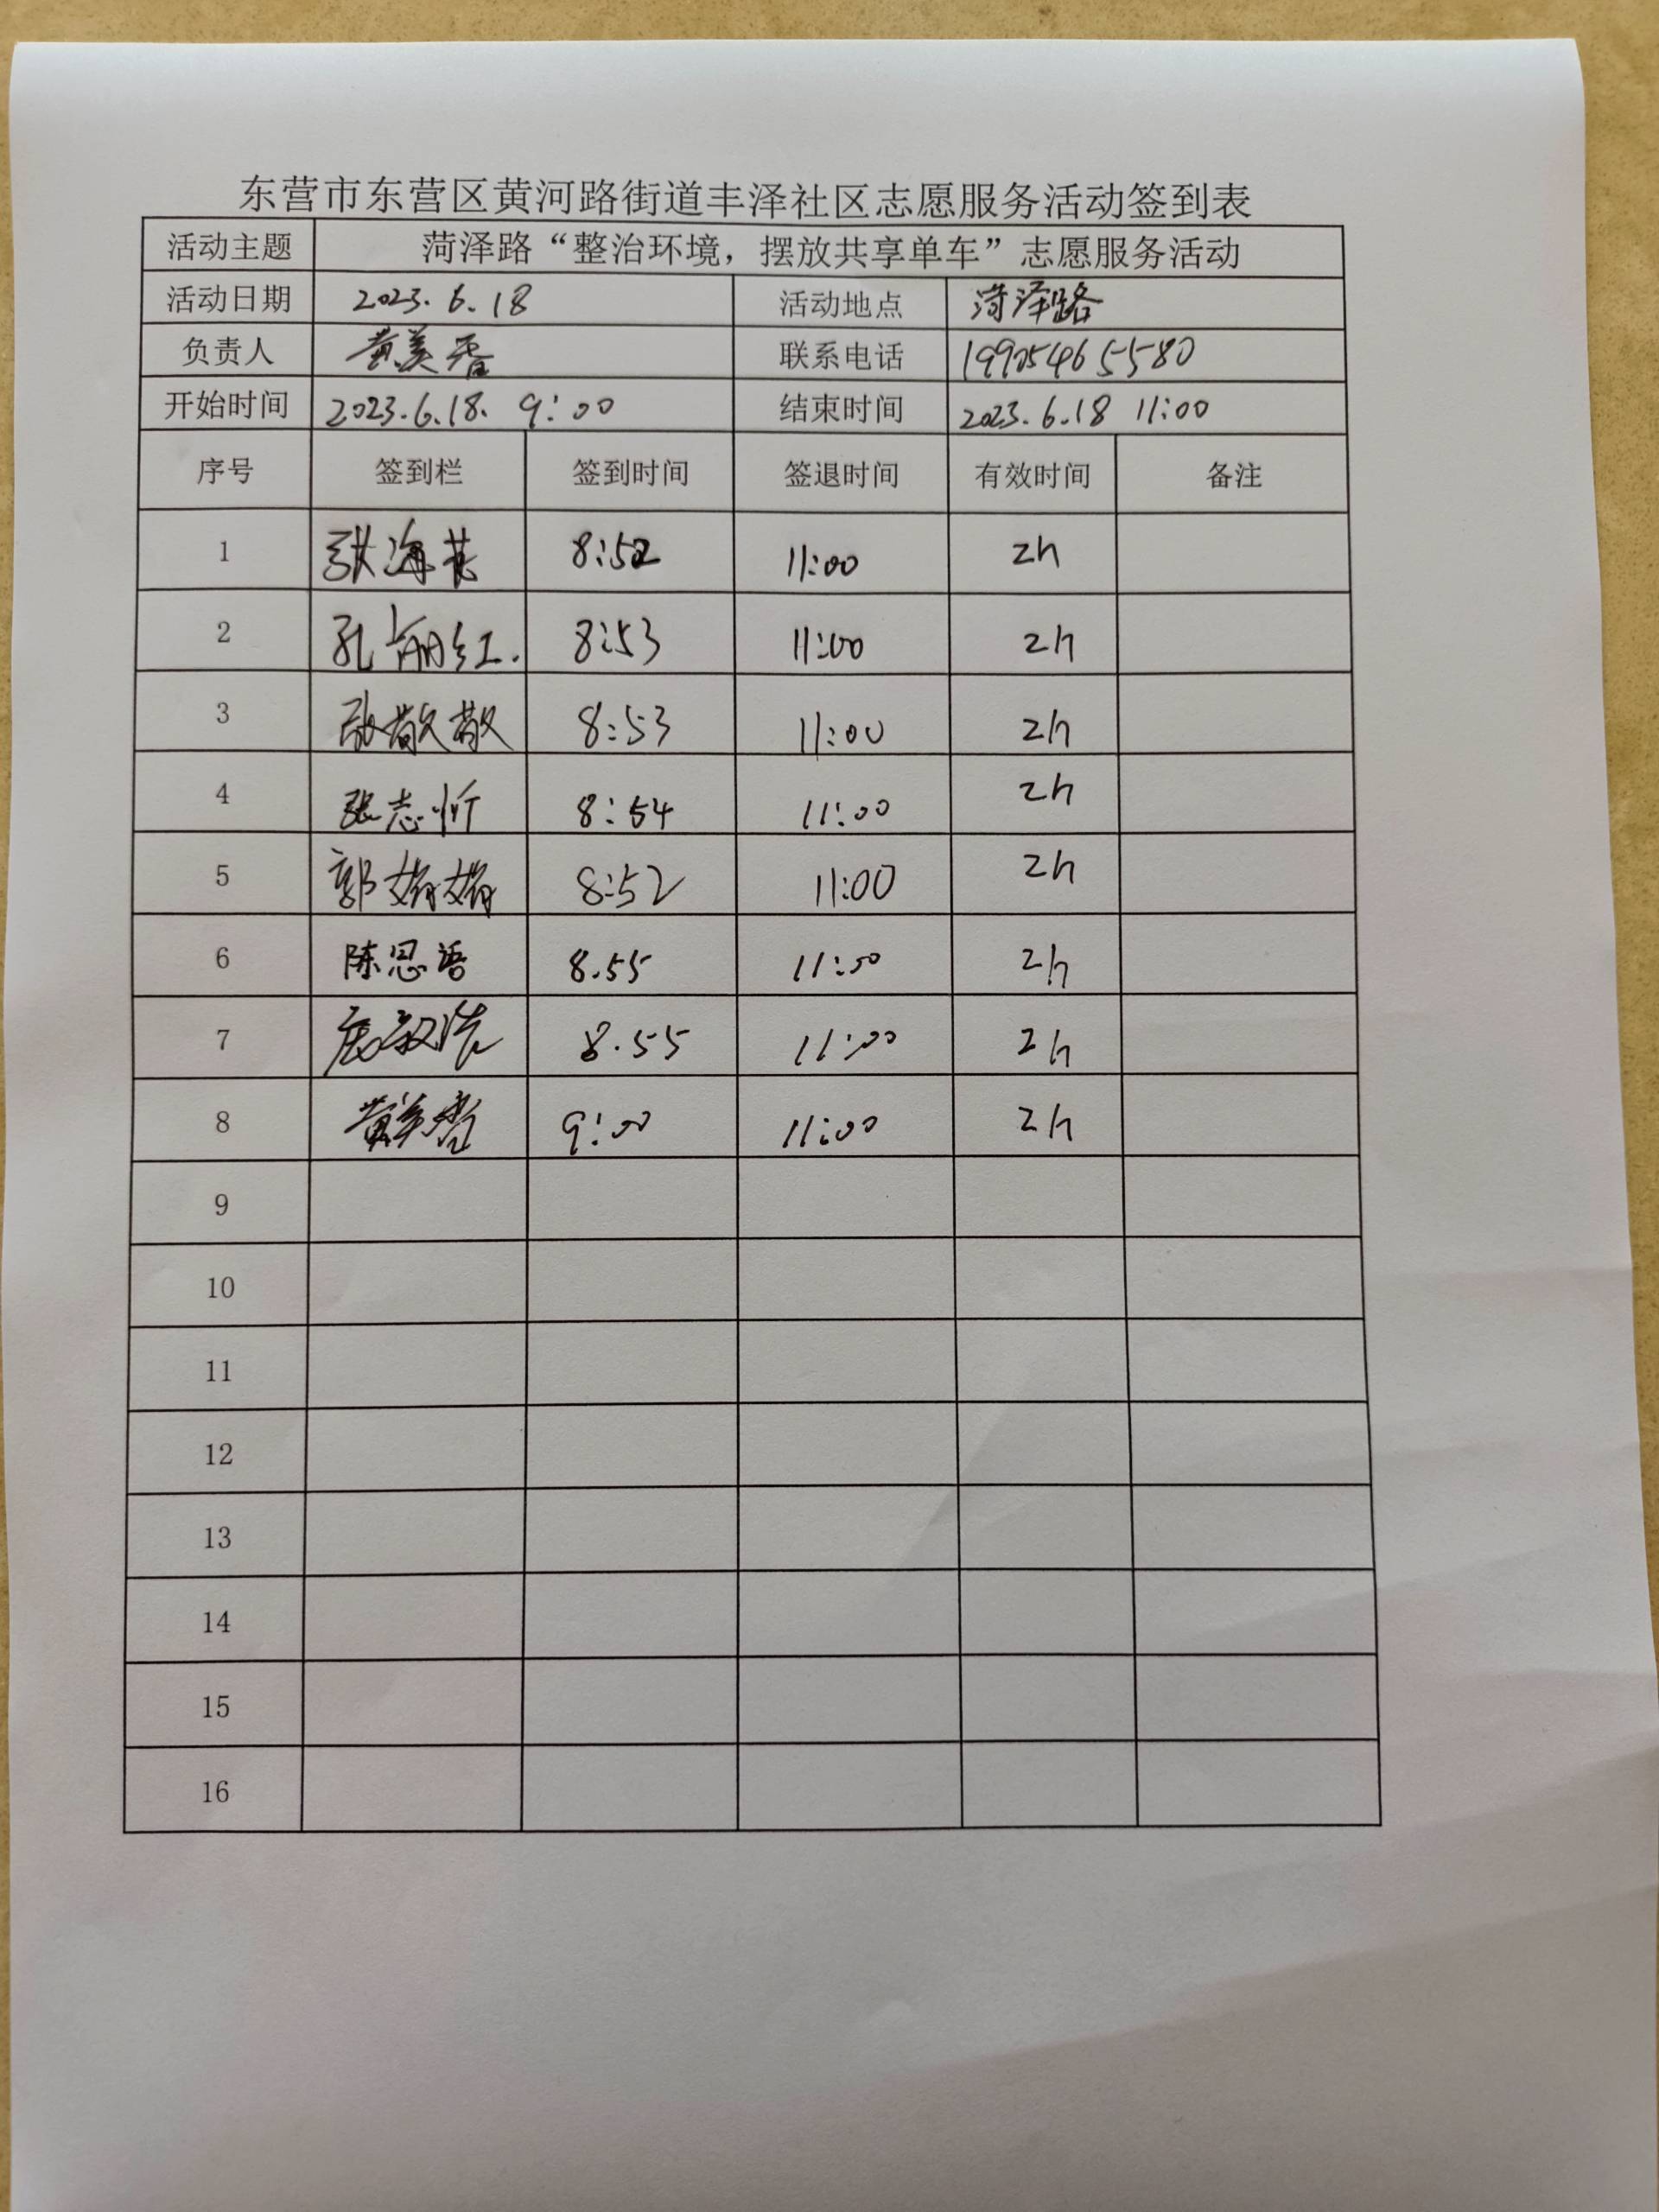 东营市东营区黄河路街道丰泽社区志愿服务活动签到表
活动主题 菏泽路“整治环境，摆放共享单车”志愿服务活动
活动日期 2023.6.18 活动地点 菏泽路
负责人 黄美香 联系电话 19905465580
开始时间 2023.6.18. 9:00 结束时间 2023.6.18 11:00
序号 签到栏 签到时间 签退时间 有效时间 备注
1 8:52 11:00 2h
2 孔丽红. 8:53 11:00 2h
3 张敬敬 8:53 11:00 2h
4 张志忻 8:54 11:00 2h
5 郭婧婧 8:52 11:00 2h
6 陈思语 8.55 11:00 2h
7 8.55 11:00 2h
8 黄美香 9:00 11:00 2h
9
10
11
12
13
14
15
16